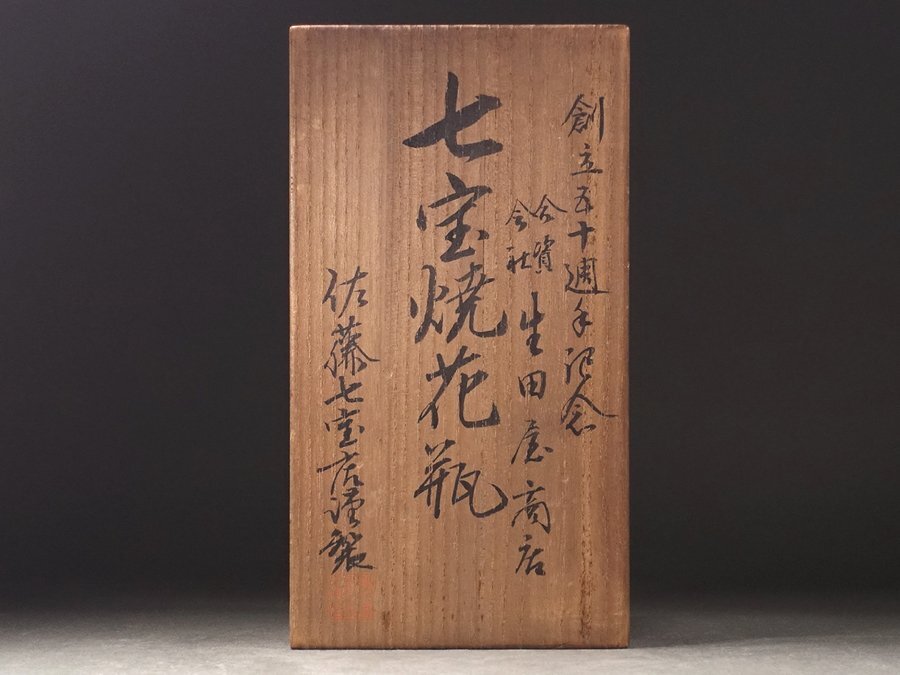 創立五十週年記念
合資会社 生田屋商店
七宝焼花瓶
佐藤七宝店謹製